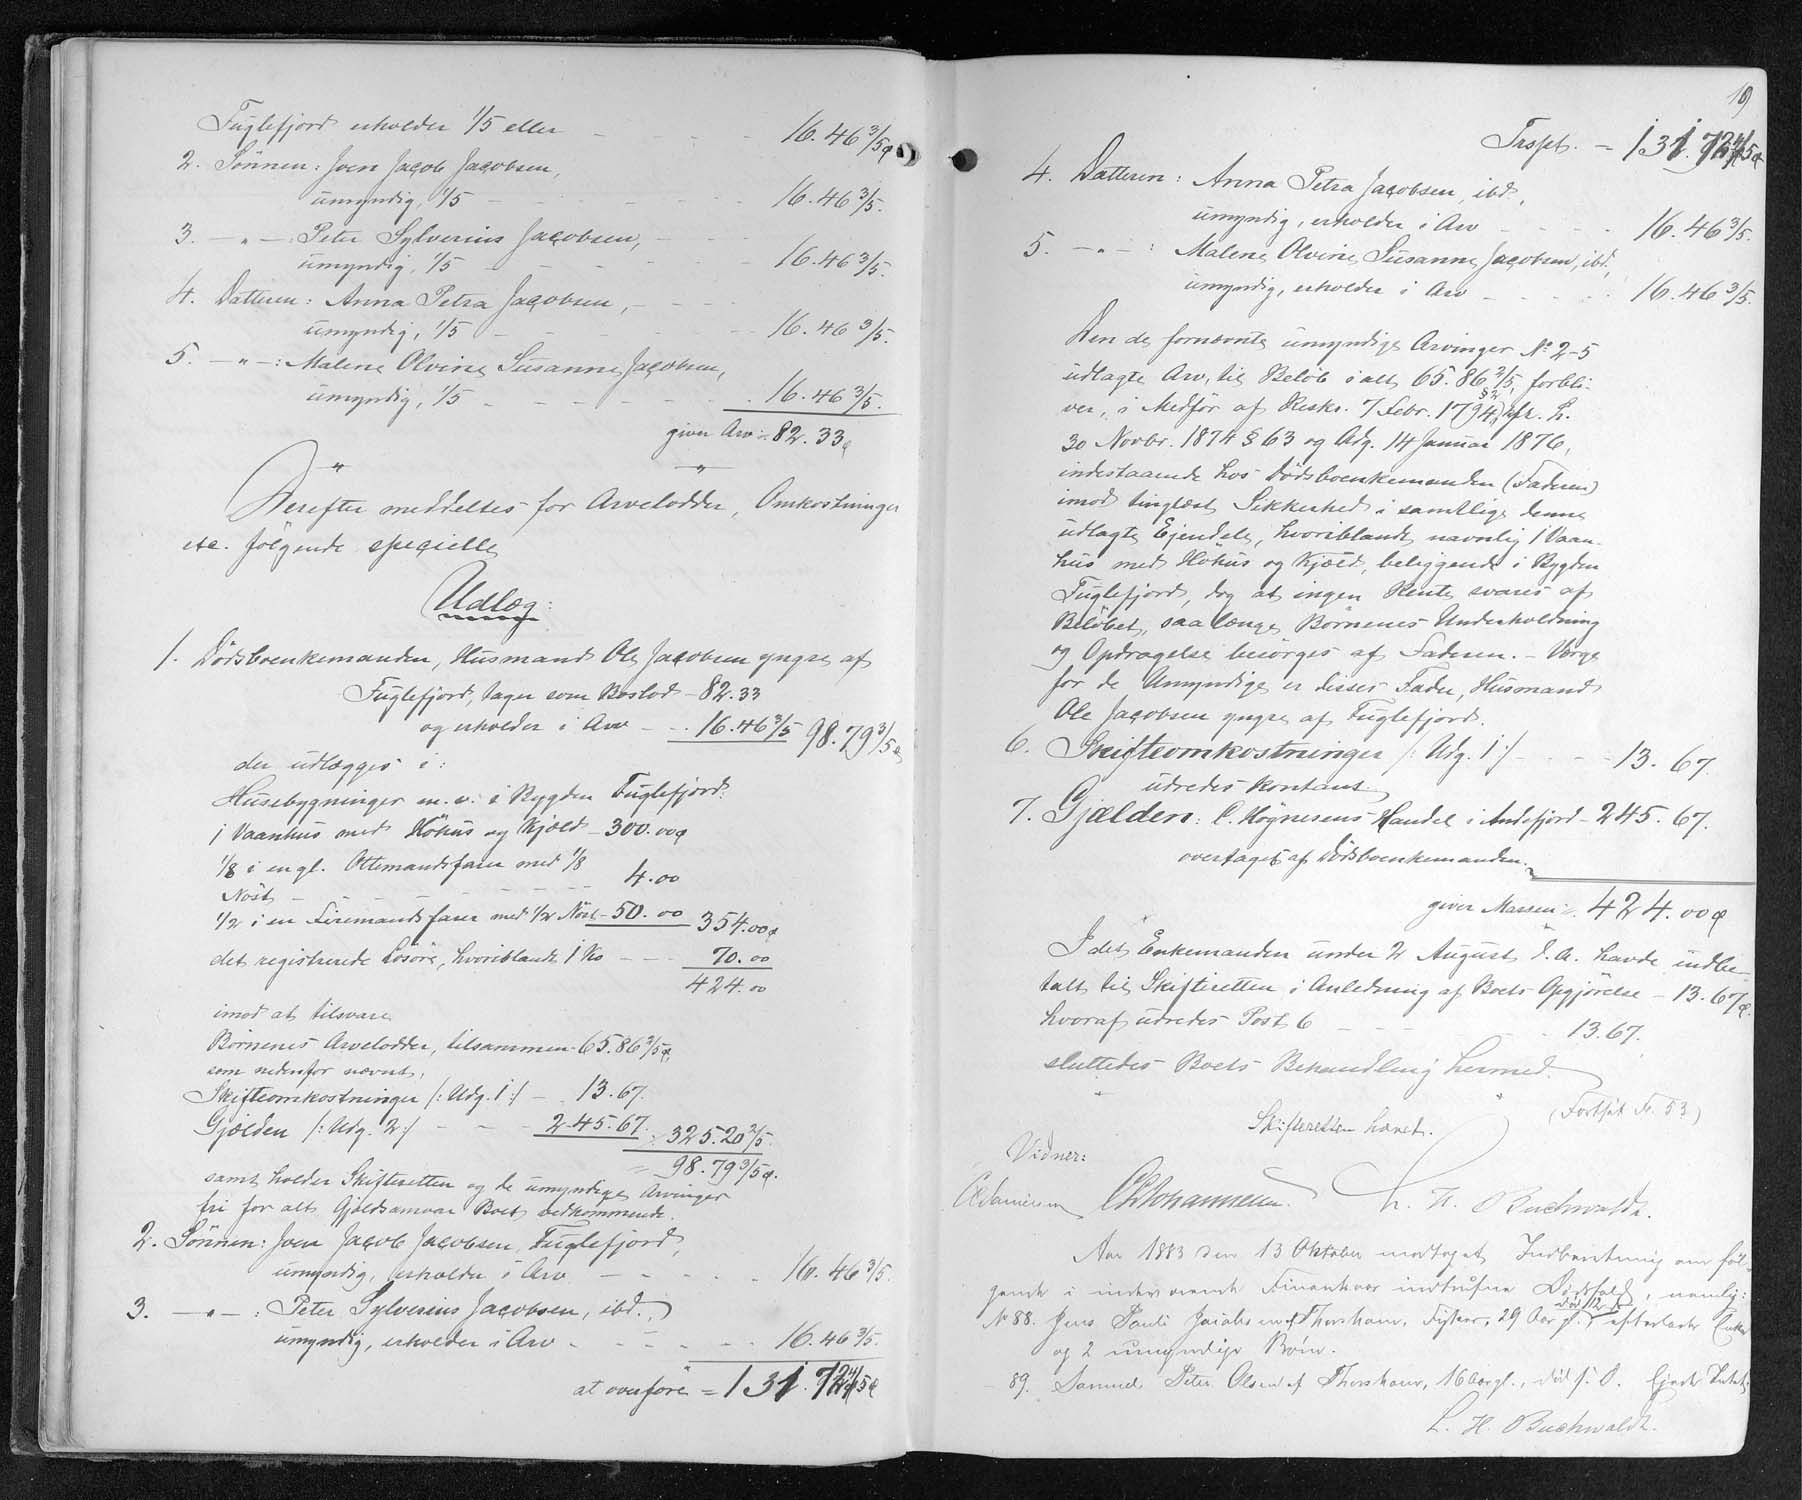 Fuglefjord erholder 1/5 eller - - - - 16.46 3/5 ¢
2. Sönnen: Joen Jacob Jacobsen,
umyndig, 1/5 - - - - 16.46 3/5.
3. - " - : Peter Sylverius Jacobsen,
umyndig, 1/5 - - - - 16.46 3/5.
4. Datteren: Anna Petra Jacobsen,
umyndig, 1/5 - - - - 16.46 3/5.
5. - " - : Malene Olvine Susanne Jacobsen,
umyndig, 1/5 - - - - 16.46 3/5.
giver Arv = 82.33 ¢
" "
Derefter meddeltes for Arvelodder, Omkostninger
etc. følgende specielle
Udlæg:
1. Dödsboenkemanden, Husmand Ole Jacobsen yngre af
Fuglefjord, tager som Boslod - 82.33
og erholder i Arv - - 16.46 3/5 98.79 3/5 ¢
der udlægges i:
Husebygninger m. v. i Bygden Fuglefjord:
1 Vaanhus med Höhus og Kjæld - 300.00 ¢
1/8 i en gl. Ottemandsfarer med 1/8
Nöst - - - - 4.00
1/2 i en Firemandsfarer med 1/2 Nöst - 50.00 354.00 ¢
det registrerede Lösöre, hvoriblandt 1 Ko - - 70.00
424.00
imod at tilsvare
Börnenes Arvelodder, tilsammen - 65.86 2/5 ¢,
som nedenfor nævnt,
Skifteomkostninger /: Udg. 1 :/ - 13.67.
Gjælden /: Udg. 2 :/ - - - 245.67. 325.20 2/5.
= 98.79 3/5 ¢.
samt holder Skifteretten og de umyndige Arvinger
fri for alt Gjældsansvar Boet vedkommende.
2. Sönnen: Joen Jacob Jacobsen, Fuglefjord,
umyndig, erholder i Arv - - - - 16.46 3/5.
3. - " - : Peter Sylverius Jacobsen, ibd.,
umyndig, erholder i Arv - - - - 16.46 3/5.
at overføre = 131.72 4/5 ¢
19
Trspt. - 131.72 4/5 ¢
4. Datteren: Anna Petra Jacobsen, ibd.,
umyndig, erholder i Arv - - - - 16.46 3/5.
5. - " - : Malene Olvine Susanne Jacobsen, ibd.,
umyndig, erholder i Arv - - - - 16.46 3/5.
Den de fornævnte umyndige Arvinger No 2-5
udlagte Arv, til Beløb i alt 65.86 2/5, forbli-
ver, i Medför af Reskr. 7 Febr. 1794, § 2, jfr. L.
30 Novbr. 1874 § 63 og Adg. 14 Januar 1876,
indestaaende hos Dödsboenkemanden (Faderen)
imod tinglæst Sikkerhed i samtlige denne
udlagte Ejendele, hvoriblandt navnlig 1 Vaan-
hus med Höhus og Kjæld, beliggende i Bygden
Fuglefjord, dog at ingen Rente svares af
Belöbet, saalænge Börnenes Underholdning
og Opdragelse besörges af Faderen. - Værge
for de Umyndige er disses Fader, Husmand
Ole Jacobsen yngre af Fuglefjord.
6. Skifteomkostninger /: Udg. 1 :/ - - - 13.67.
udredes kontant.
7. Gjælden: C. Høgnesens Handel i Andefjord - 245.67.
overtaget af Dödsboenkemanden.
giver Massen = 424.00 ¢
I det Enkemanden under 2 August d. A. havde indbe-
talt til Skifteretten i Anledning af Boets Opgjörelse - 13.67 ¢.
hvoraf udredes Post 6 - - - - 13.67.
sluttedes Boets Behandling hermed.
(Fortsat Fr. 53)
Skifteretten hævet.
Vidner:
Johannesen. L. H. Buchwaldt.
Aar 1883 den 13 Oktober modtaget Indberetning om föl-
gende i indeværende Finantsaar indtrufne Dödsfald, nemlig:
No 88. Jens Pauli Jacobsen af Thorshavn, Fisker, 29 Aar gl., död 12, efterlader Enke
og 2 umyndige Börn.
89. Samuel Peter Olsen af Thorshavn, 16 Aar gl., död s. D. Ejede Intet.
L. H. Buchwaldt.